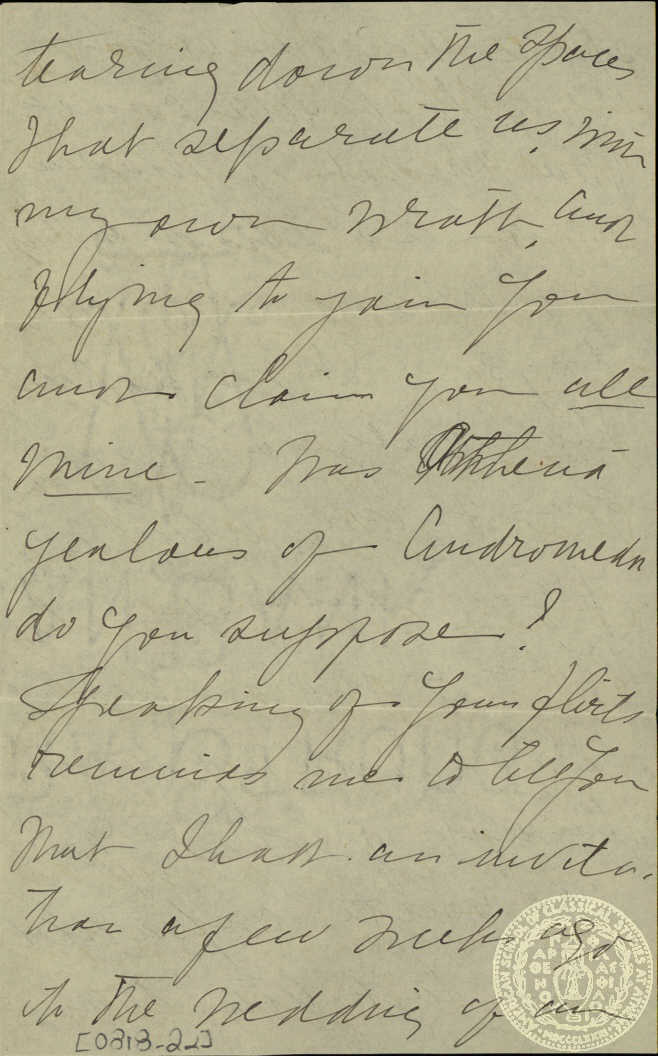 tearing down the spaces
that separate us, in
my own wrath, and
flying to join you
and claim you all
mine - was Athena
jealous of Andromeda
do you suppose?
Speaking of your flirts
reminds me to tell you
that I had an invita-
tion a few weeks ago
to the wedding of an
[0313-22]